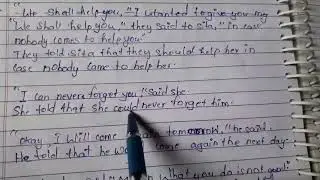 "We shall help you," "I wanted to give you my
"We shall help you," they said to sita, "in case
nobody comes to help you"
They told sita that they should help her in
case nobody came to help her.
"I can never forget you," said she.
She told that she could never forget him.
"Okay, I will come again tomorrow," he said.
He told that he would come again the next day.
What you do is not good